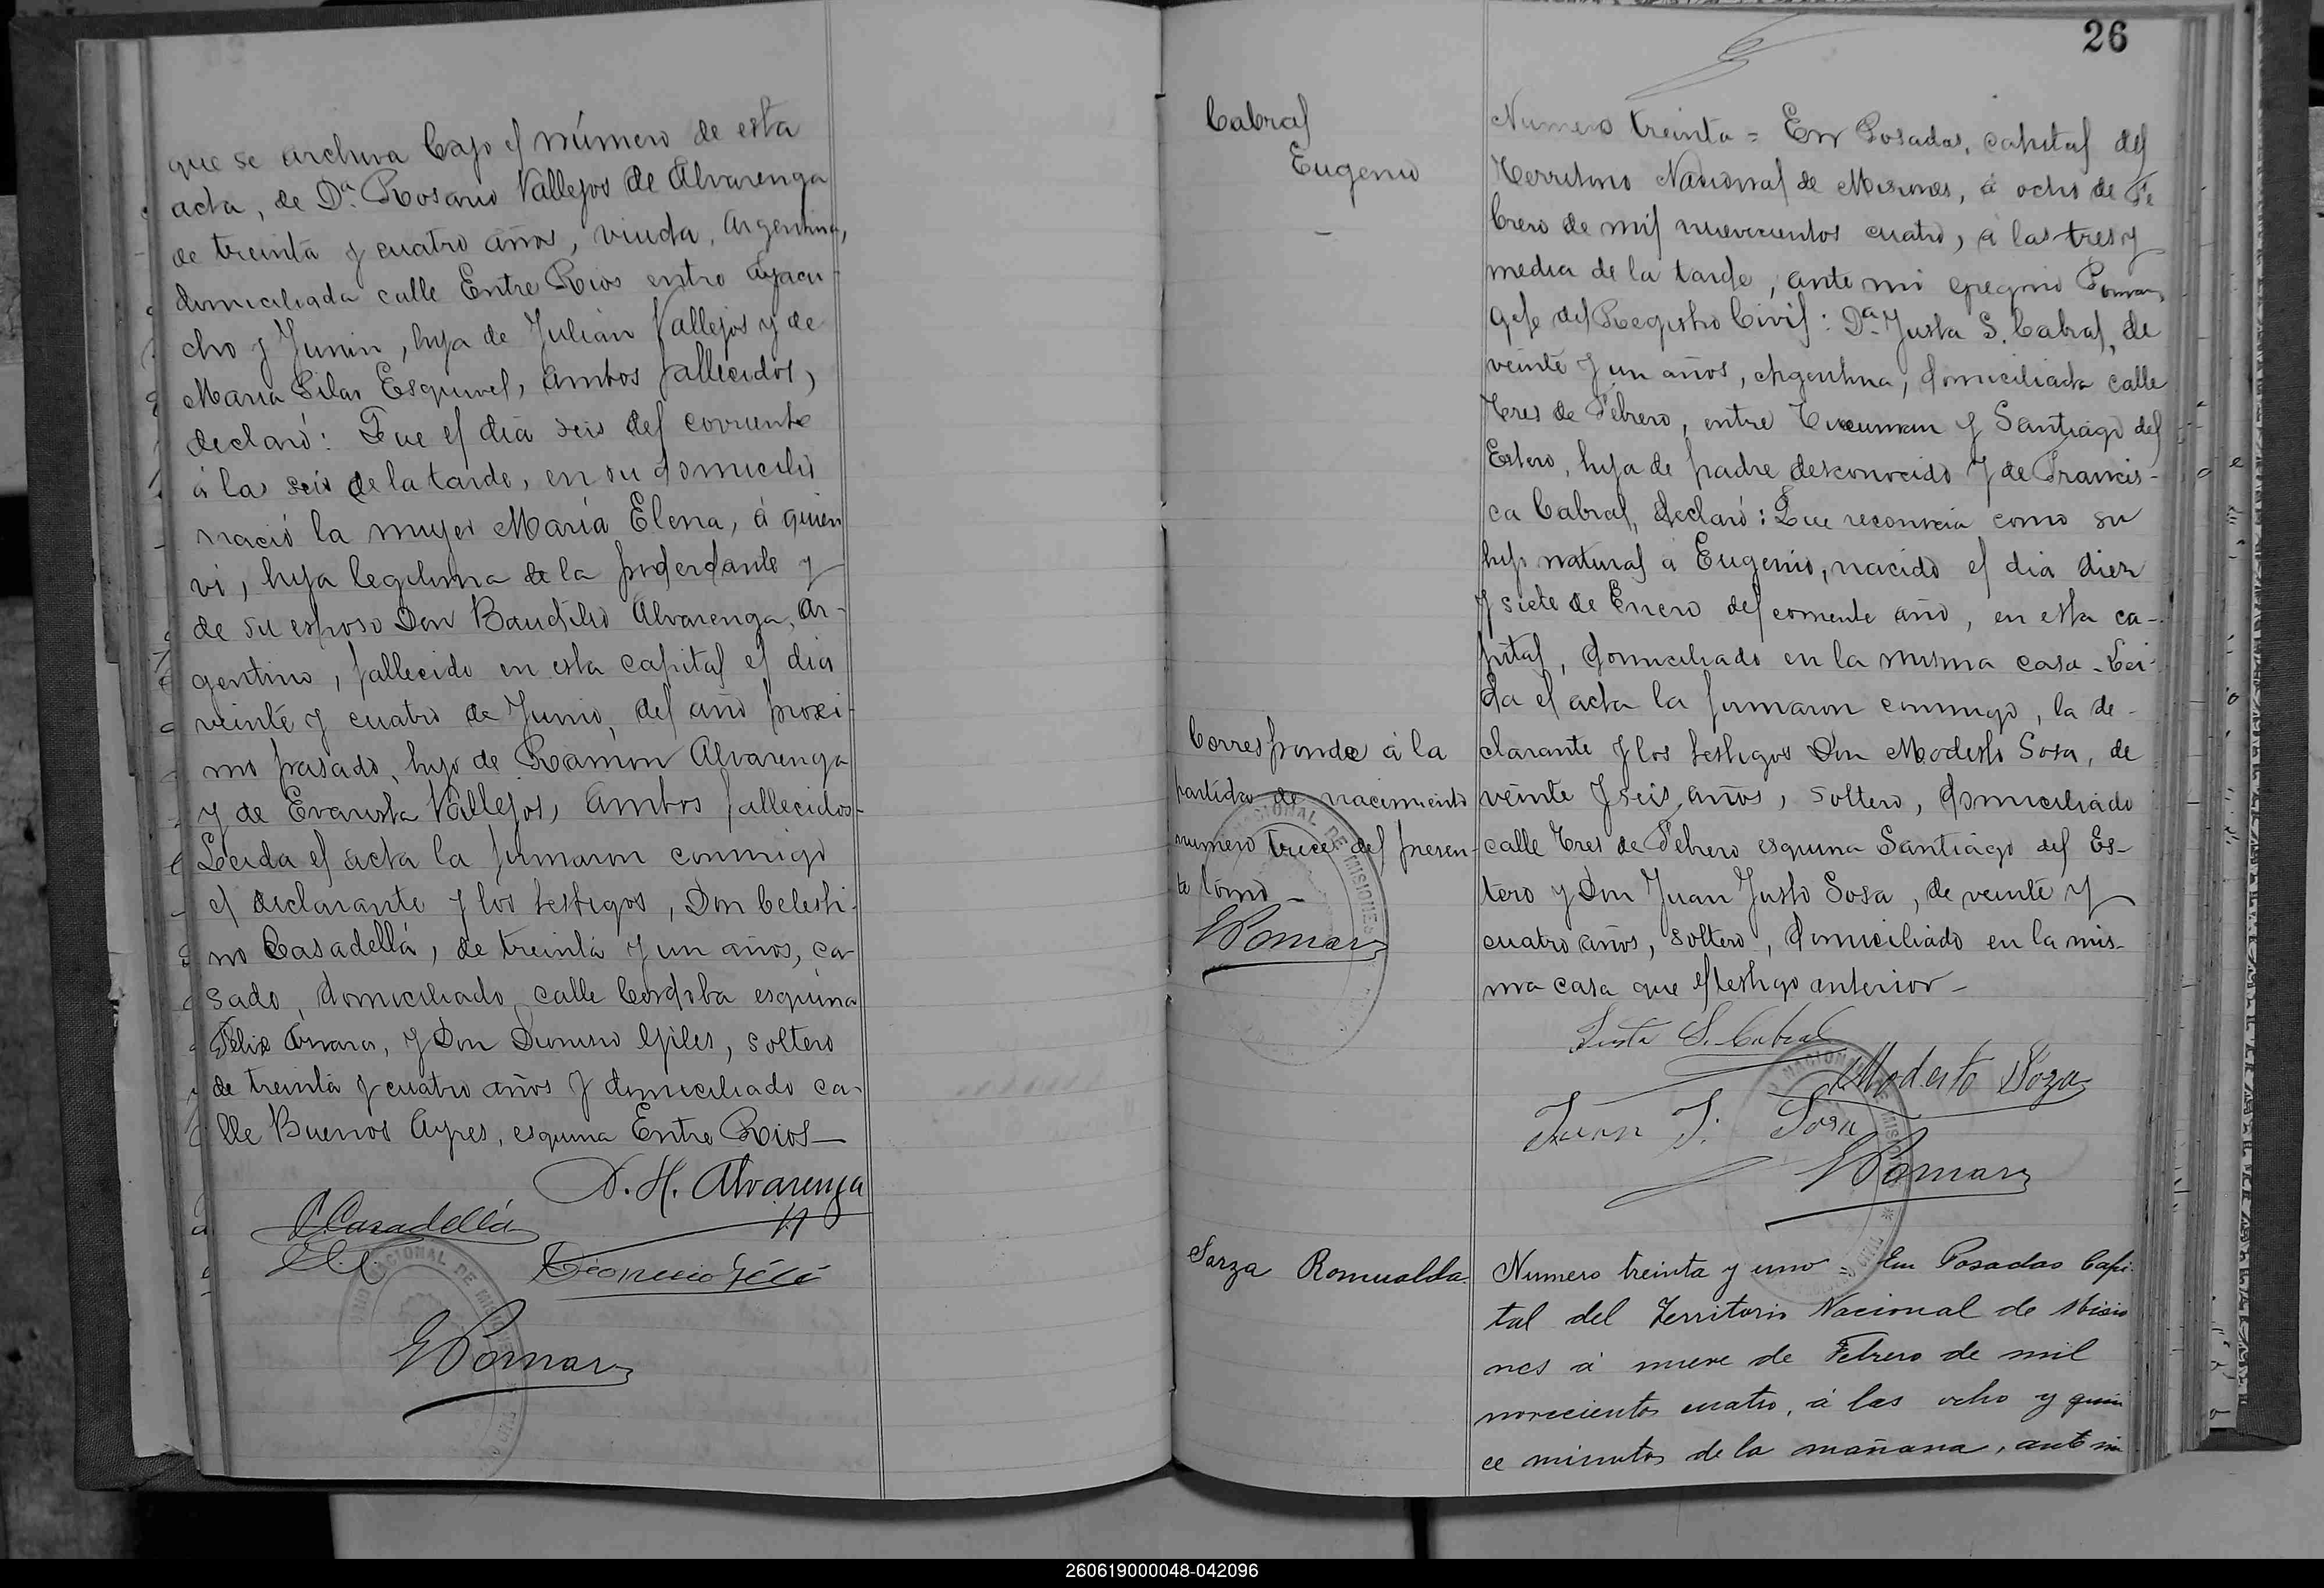 que se archiva bajo el número de esta
acta, de Da. Rosario Vallejos de Alvarenga
de treinta y cuatro años, viuda, Argentina,
domiciliada calle Entre Rios entre Ayacu-
cho y Junin, hija de Julian Vallejos y de
Maria Pilar Esquivel, ambos fallecidos,
declaró: Que el dia seis del corriente
á las seis de la tarde, en su domicilio
nació la mujer María Elena, á quien
vi, hija legitima de la poderdante y
de su esposo Don Baudilio Alvarenga, Ar-
gentino, fallecido en esta capital el dia
veinte y cuatro de Junio, del año proxi-
mo pasado, hijo de Ramon Alvarenga
y de Evarista Vallejos, ambos fallecidos-
Leida el acta la firmaron conmigo
el declarante y los testigos, Don Celesti-
no Casadellá, de treinta y un años, ca-
sado, domiciliado calle Cordoba esquina
Felix Azara, y Don Dionisio Giles, soltero
de treinta y cuatro años y domiciliado ca-
lle Buenos Ayres, esquina Entre Rios—
D. H. Alvarenga
C. Casadellá
Dionicio Géle
E Pomar
26
Cabral
Eugenio
—
Numero treinta = En Posadas, capital del
Territorio Nacional de Misiones, á ocho de Fe
brero de mil nuevecientos cuatro, á las tres y
media de la tarde, ante mi Pomar
Gefe del Registro Civil: Da. Justa S. Cabral, de
veinte y un años, Argentina, domiciliada calle
Tres de Febrero, entre Tucuman y Santiago del
Estero, hija de padre desconocido y de Francis-
ca Cabral, declaró: Que reconocia como su
hijo natural á Eugenio, nacido el dia diez
y siete de Enero del corriente año, en esta ca-
pital, domiciliado en la misma casa - Lei-
da el acta la firmaron conmigo, la de-
clarante y los testigos Don Modesto Sosa, de
veinte y seis años, soltero, domiciliado
calle Tres de Febrero esquina Santiago del Es-
tero y Don Juan Justo Sosa, de veinte y
cuatro años, soltero, domiciliado en la mis-
ma casa que el testigo anterior—
Corresponde á la
partida de nacimiento
numero trece del presen-
te tomo—
E Pomar
Justa S. Cabral
Modesto Soza
Juan J. Sosa
E Pomar
Sarza Romualda
Numero treinta y uno = En Posadas Capi-
tal del Territorio Nacional de Misio
nes á nueve de Febrero de mil
novecientos cuatro, á las ocho y quin
ce minutos de la mañana, ante mi
260619000048-042096